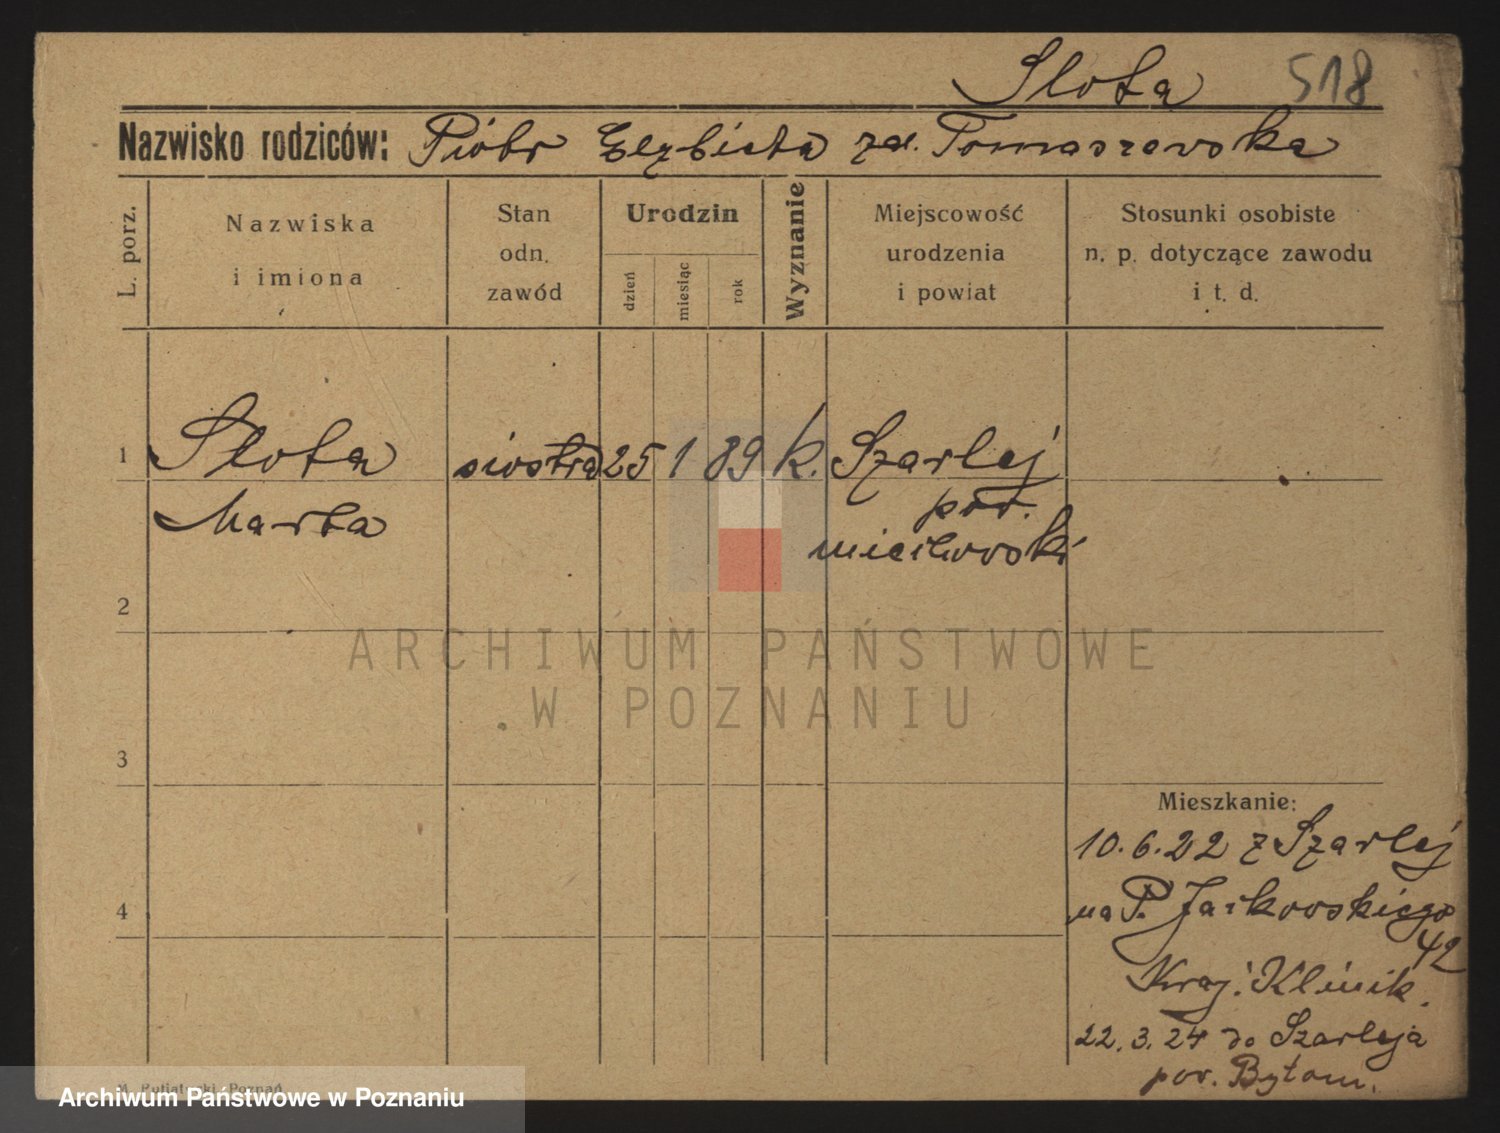 Slota 518
Nazwisko rodziców: Piótr Elzbieta zd. Tomaszewska
L. porz.
Nazwiska
i imiona
Stan
odn.
zawód
Urodzin
dzień
miesiąc
rok
Wyznanie
Miejscowość
urodzenia
i powiat
Stosunki osobiste
n. p. dotyczące zawodu
i t. d.
1 Slota siostra 25 1 89 k. Szarlej
Marta pow.
2
3
4
Mieszkanie:
10.6.22 z Szarlej
na P. Jackowskiego
42
Kraj. Klinik.
22.3.24 do Szarleja
pow. Bytom.
ARCHIWUM PAŃSTWOWE
W POZNANIU
Archiwum Państwowe w Poznaniu